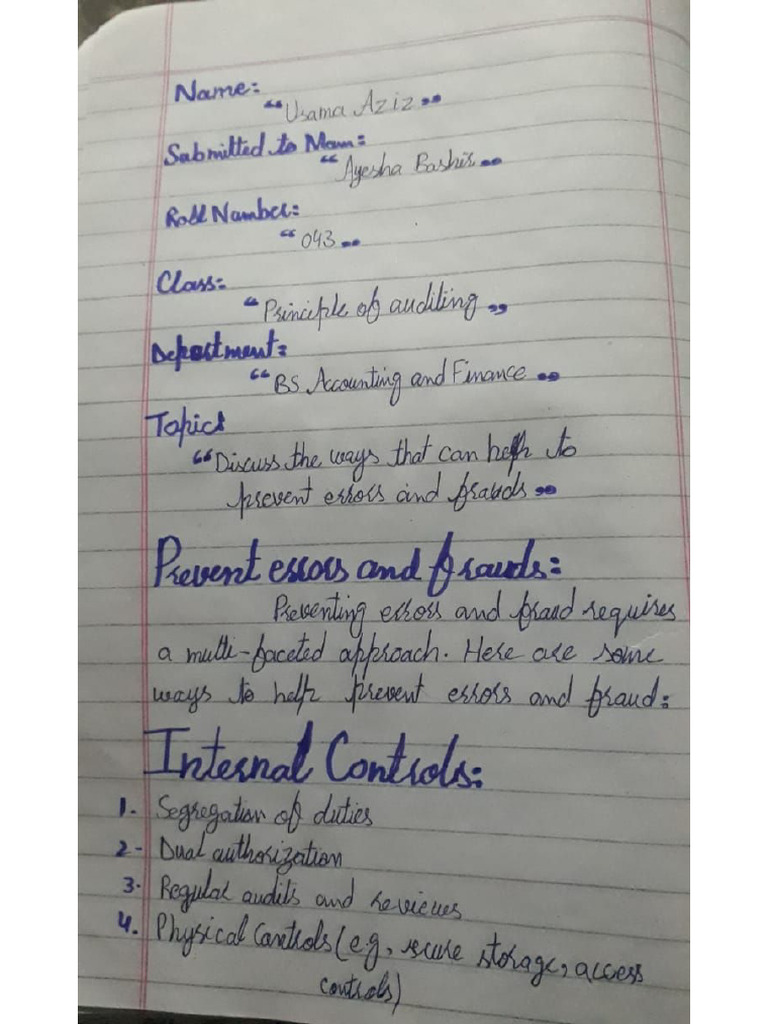 Name:
"Usama Aziz"
Submitted to Mam:
"Ayesha Bashir"
Roll Number:
"043"
Class:
"Principle of auditing"
Department:
"BS Accounting and Finance"
Topic:
"Discuss the ways that can help to
prevent errors and frauds"
Prevent errors and frauds:
Preventing errors and fraud requires
a multi-faceted approach. Here are some
ways to help prevent errors and fraud:
Internal Controls:
1. Segregation of duties
2- Dual authorization
3. Regular audits and reviews
4. Physical Controls (e.g, secure storage, access
controls)